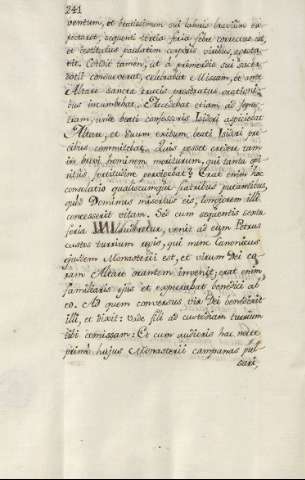 241
ventum, et beatissimum sui laboris bravium ex-
pectaret, sequenti tertia feria febre correctus est,
et destitutus paulatim corporis viribus, egrota-
vit. Cepit tamen, ut a primordio sui sacer-
dotii consueverat, celebrabat Missam, et ante
Altare sancta crucis prostratus oration-
bus incumbebat. Accedebat etiam ad sepul-
crum, unde beati confessoris Isidori aspiciebat
Altare, et suum exitum beati Isidori pre-
cibus committebat. Quis posset credere tam
in brevi hominem moriturum, qui tanta spi-
ritus fortitudine perdurabat? Erat enim hac
consolatio qualiscumque fratribus putantibus,
quod Dominus misertus eis, longiorem illi
concesserit vitam. Sed cum sequentis sexta
feria illucesceret, venit ad eum Petrus
custos turrium cuis, qui nunc Canonicus
ejusdem Monasterii est, et virum Dei co-
ram Altare orantem invenit; erat enim
familiaris ejus et expectabat benedici ab
eo. Ad quem conversus vir Dei benedixit
illi, et dixit: vade fili ad custodiam turrium
tibi comissam: Et cum audieris hac nocte
primo hujus Monasterii campanas pul-
sari,